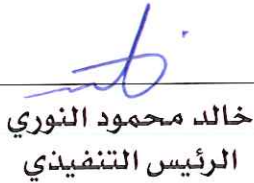 خالد محمود النوري
الرئيس التنفيذي